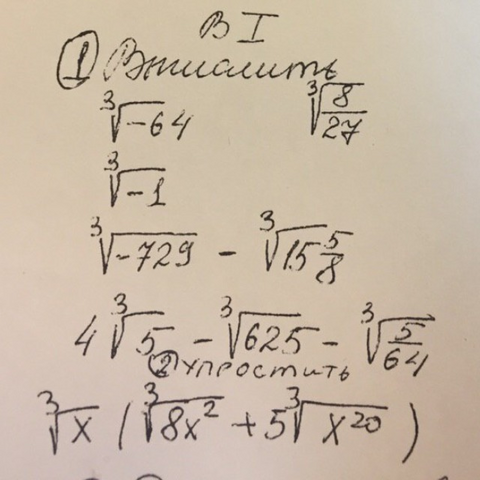 В I
① Вычислить
∛-64 ∛8/27
∛-1
∛-729 - ∛15 5/8
4∛5 - ∛625 - ∛5/64
② упростить
∛x (∛8x² + 5∛x²⁰)